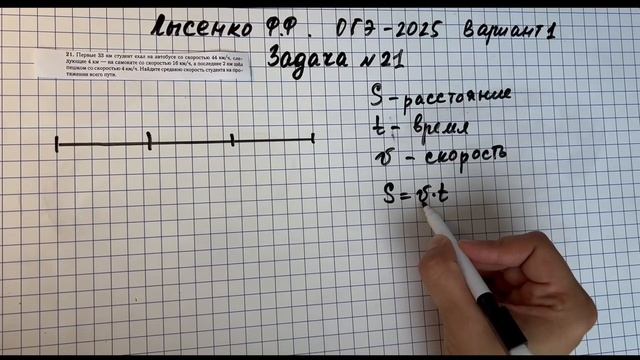 Лысенко Ф.Ф. ОГЭ-2025 Вариант 1
Задача №21
21. Первые 33 км студент ехал на автобусе со скоростью 44 км/ч, сле-
дующие 4 км — на самокате со скоростью 16 км/ч, а последние 2 км шёл
пешком со скоростью 4 км/ч. Найдите среднюю скорость студента на про-
тяжении всего пути.
S - расстояние
t - время
v - скорость
S = v·t